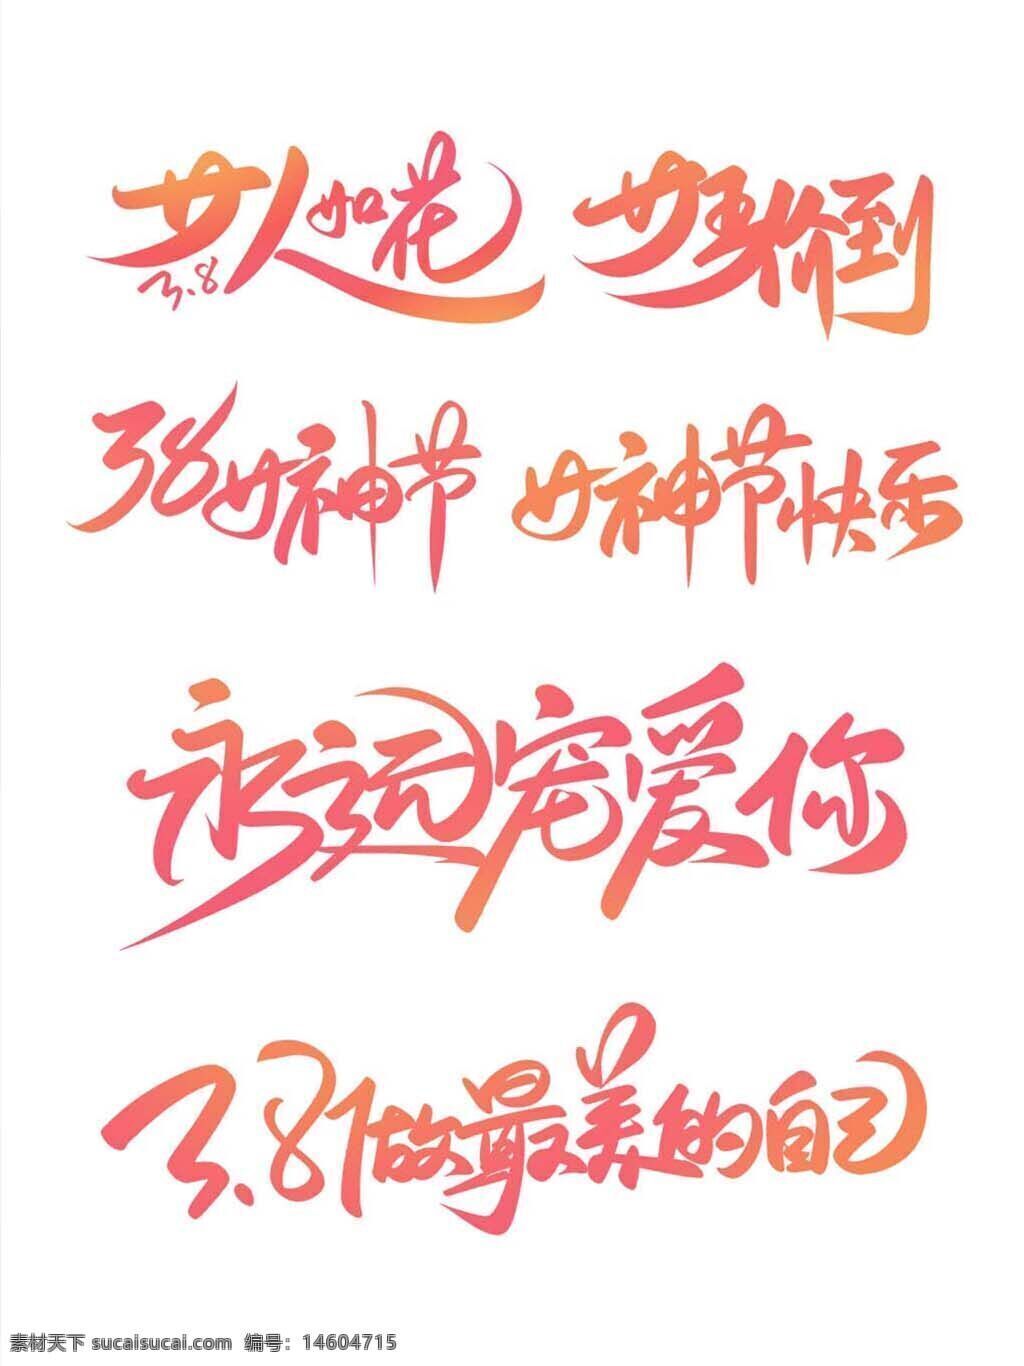 女人如花
3.8
女王价到
38女神节
女神节快乐
永远宠爱你
3.8做最美的自己
素材天下 sucaisucai.com 编号：14604715